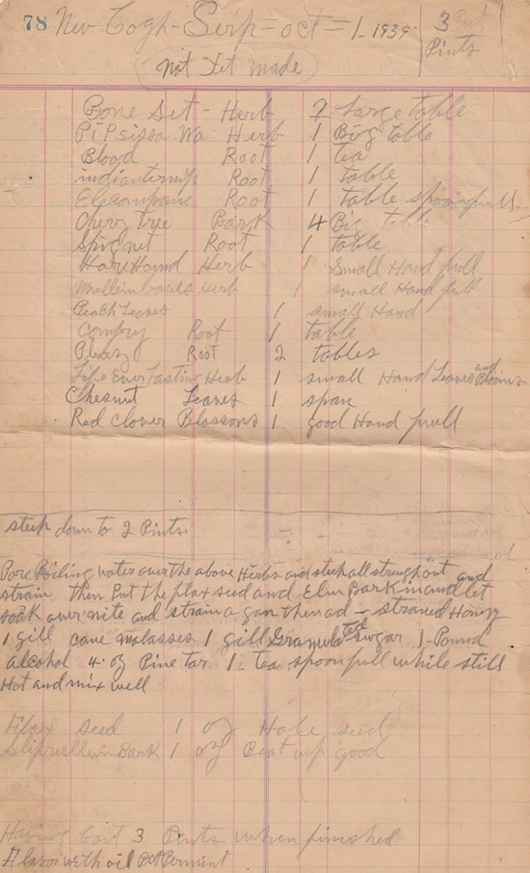 78 New-Cogh-Sirp-oct-1-1939- 3 Pints
(not Yet made)
Bone Set - Herb 2 Large table
PiPsissa Wa Herb 1 Big table
Blood Root 1 tea
indianternip Root 1 table
Elecompane Root 1 table spoonfulls
Chery tree Bark 4 Big table
Spignet Root 1 table
HoreHound Herb 1 Small Hand full
Herb 1 small Hand full
Peach Leaves 1 small Hand
Compry Root 1 table
Plurzy Root 2 tables
Life EverLasting Herb 1 small Hand Leaves and Blooms
Chesnut Leaves 1 span
Red Clover Blossoms 1 good Hand full
steep down to 2 Pints
Pore Boiling water over the above Herbs and steep all strength out and
strain then Put the flax seed and Elm Bark in and let
soak over nite and strain a gan then ad - straned Honey
1 gill cane molasses 1 gill Granulated sugar 1-Pound
alcohol 4. oz Pine Tar 1. tea spoonfull while still
Hot and mix well
Flax seed 1 oz Hole seed
Bark 1 oz Beat up good
3 Pints when finished
with oil